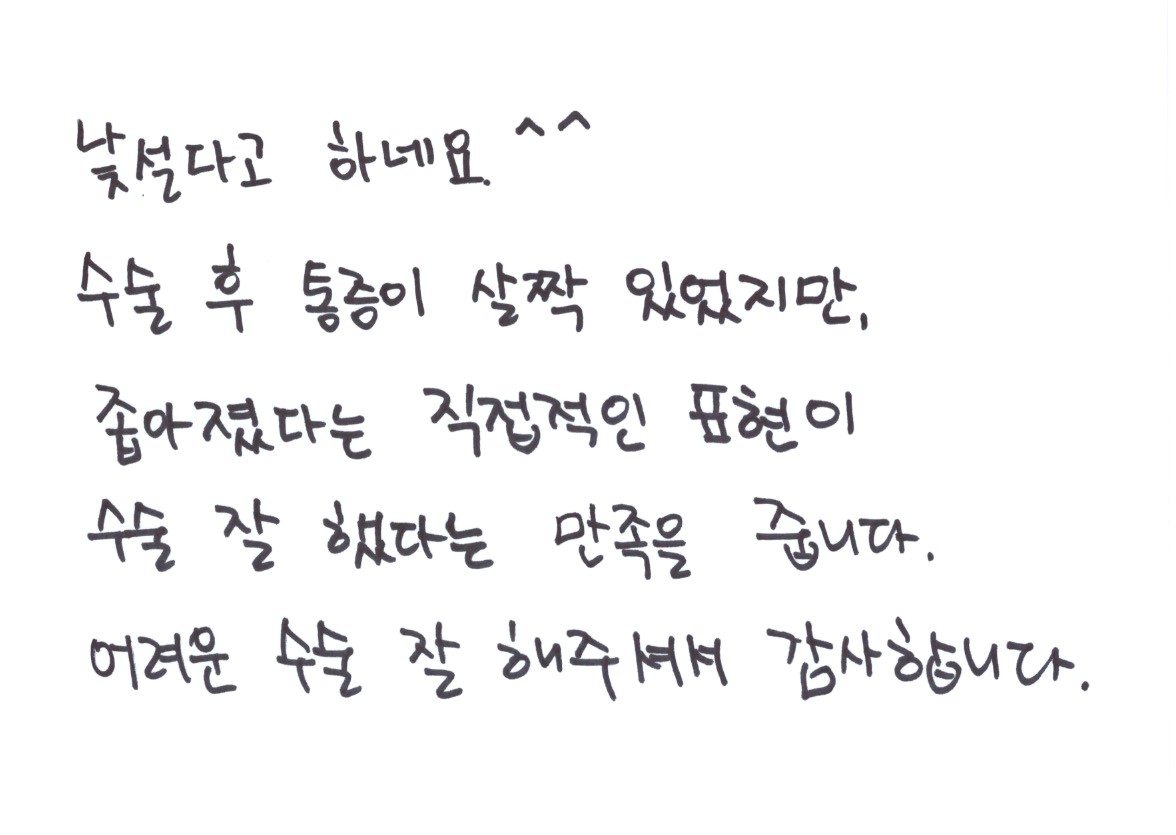 낯설다고 하네요.^^
수술 후 통증이 살짝 있었지만,
좁아졌다는 직접적인 표현이
수술 잘 했다는 만족을 줍니다.
어려운 수술 잘 해주셔셔 감사합니다.